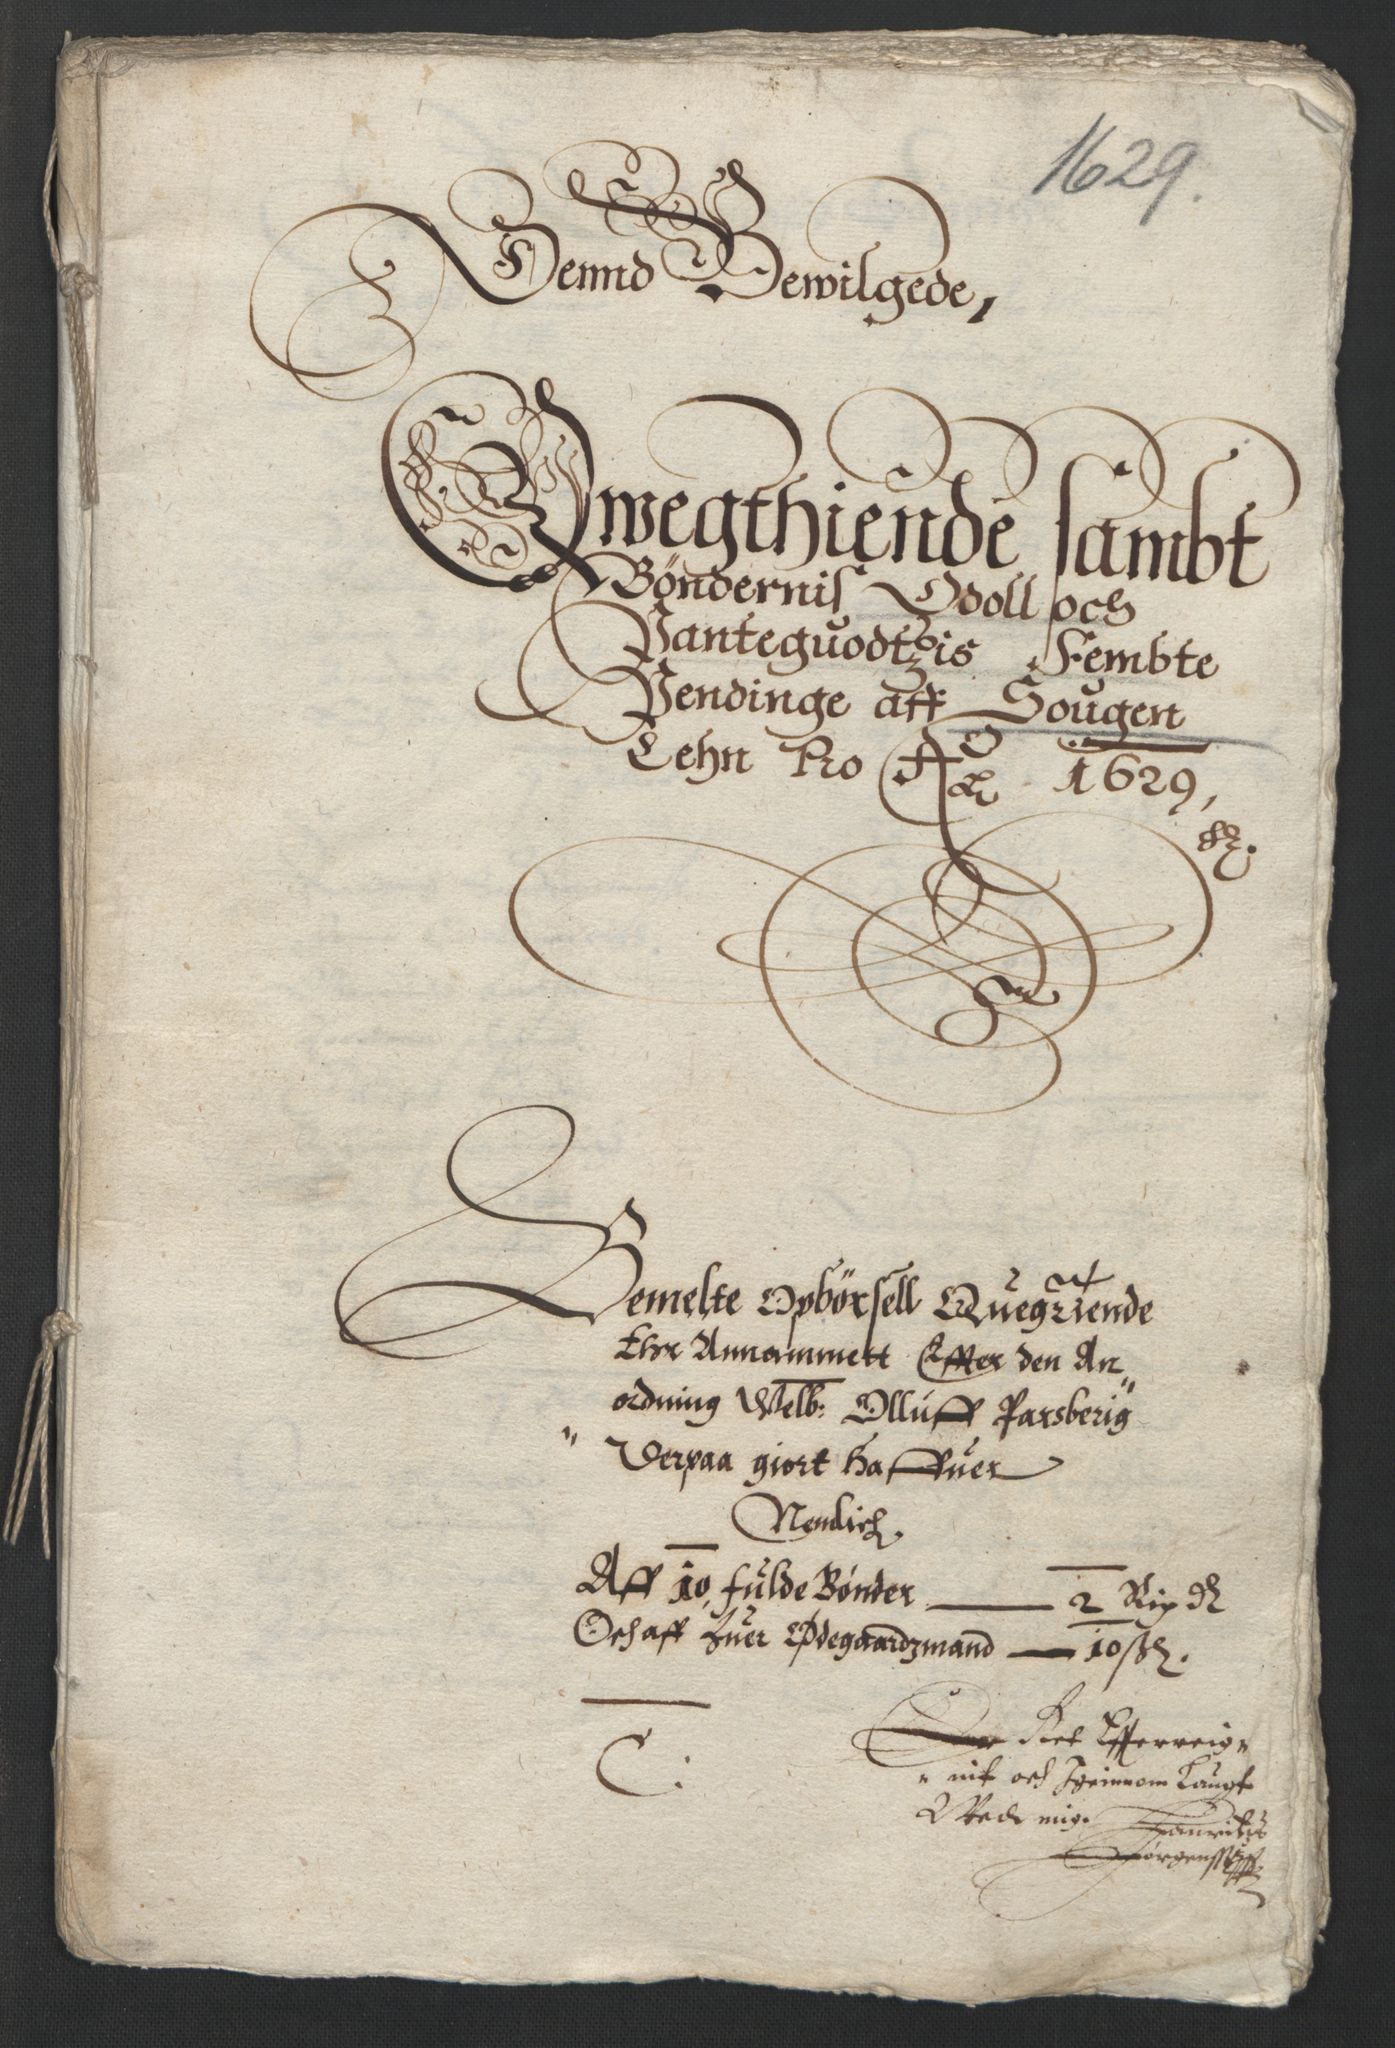 1629.
Dennd Bewilgede,
Qwegthiende sambt
Bøndernis Odoll och
Panteguodtzis Fembte
Pendinge aff Sougen
Lehn Pro Ao 1629,
Bemelte Opbørsell Quegtiende
Ehr Annammett Effter den An
ordning Welb: Olluff Parsberig
Derpaa giort haffuer
Nemlich
Aff 10 fulde Bønder — 2 Rix dl
Och aff huer Ødegaardzmand — 10 ß
C.
Ret Effterreig
nit och Igeinnom Laugt
Med mig.
Jørgenss